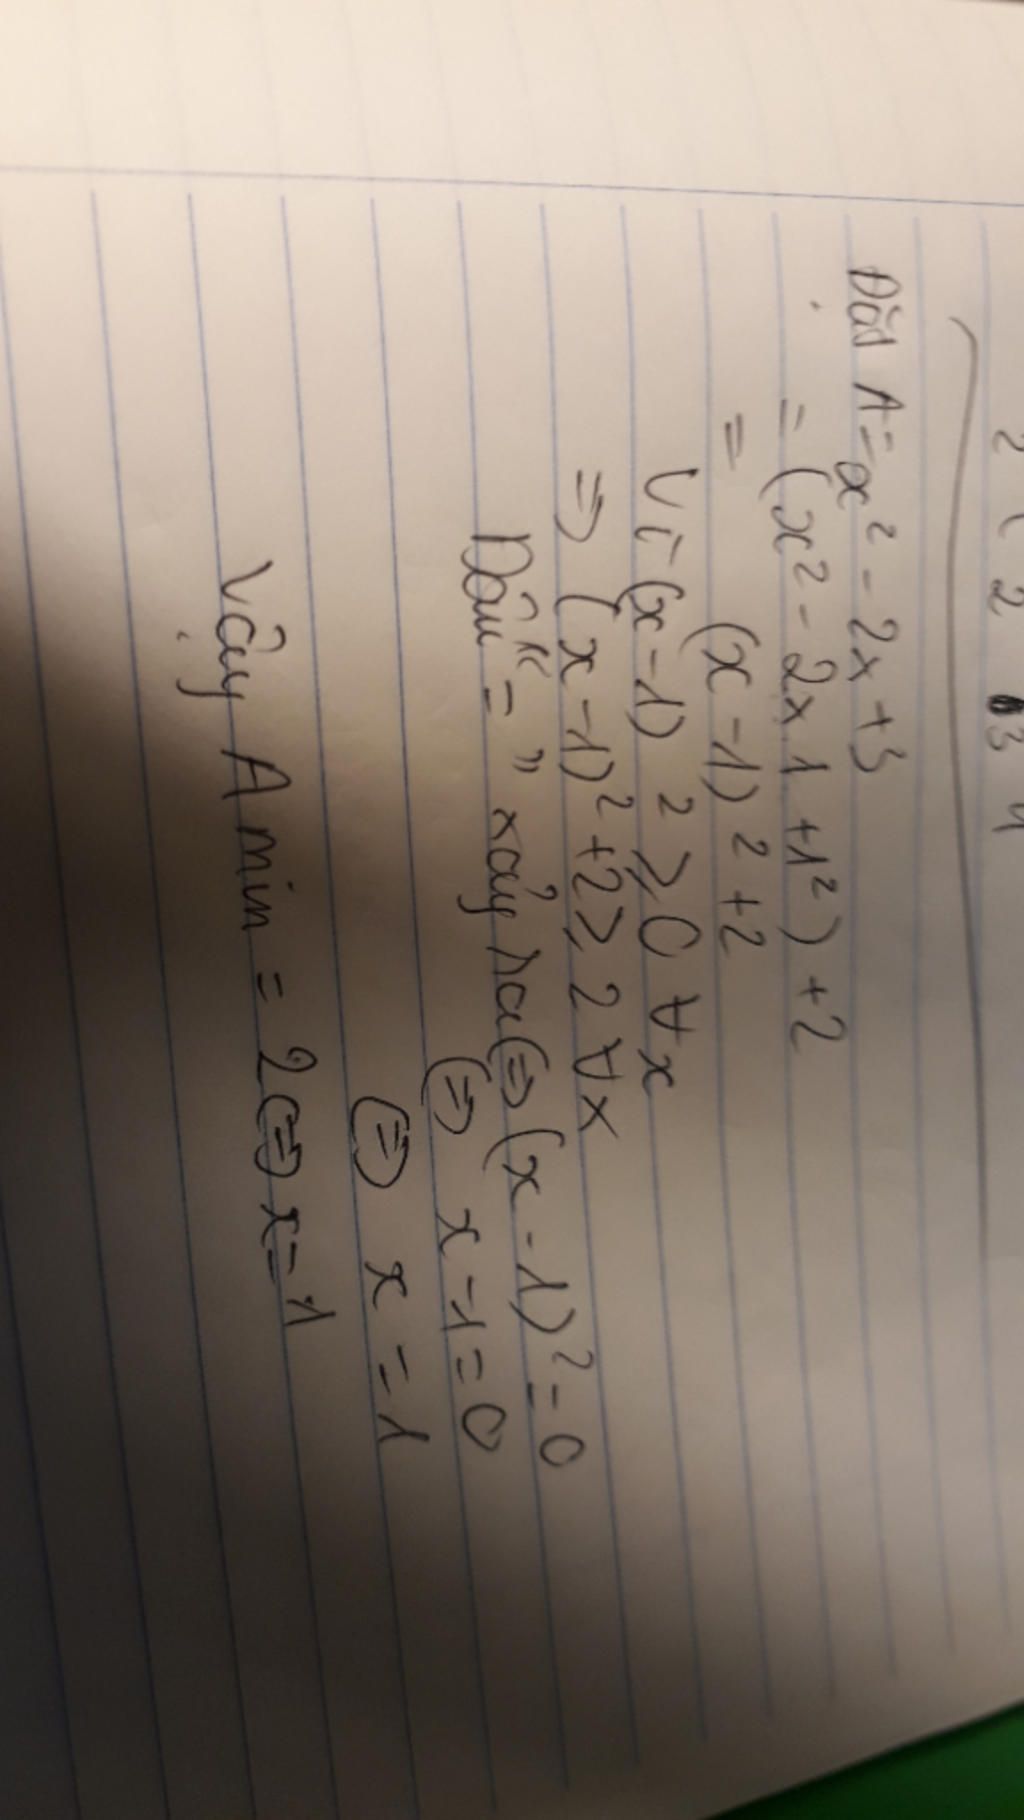 2 ( 2 3 4
Đặt A = x² - 2x + 3
= (x² - 2x.1 + 1²) + 2
= (x - 1)² + 2
Vì (x - 1)² ⩾ 0 ∀ x
=> (x - 1)² + 2 ⩾ 2 ∀ x
Dấu "=" xảy ra <=> (x - 1)² = 0
<=> x - 1 = 0
<=> x = 1
Vậy A min = 2 <=> x = 1